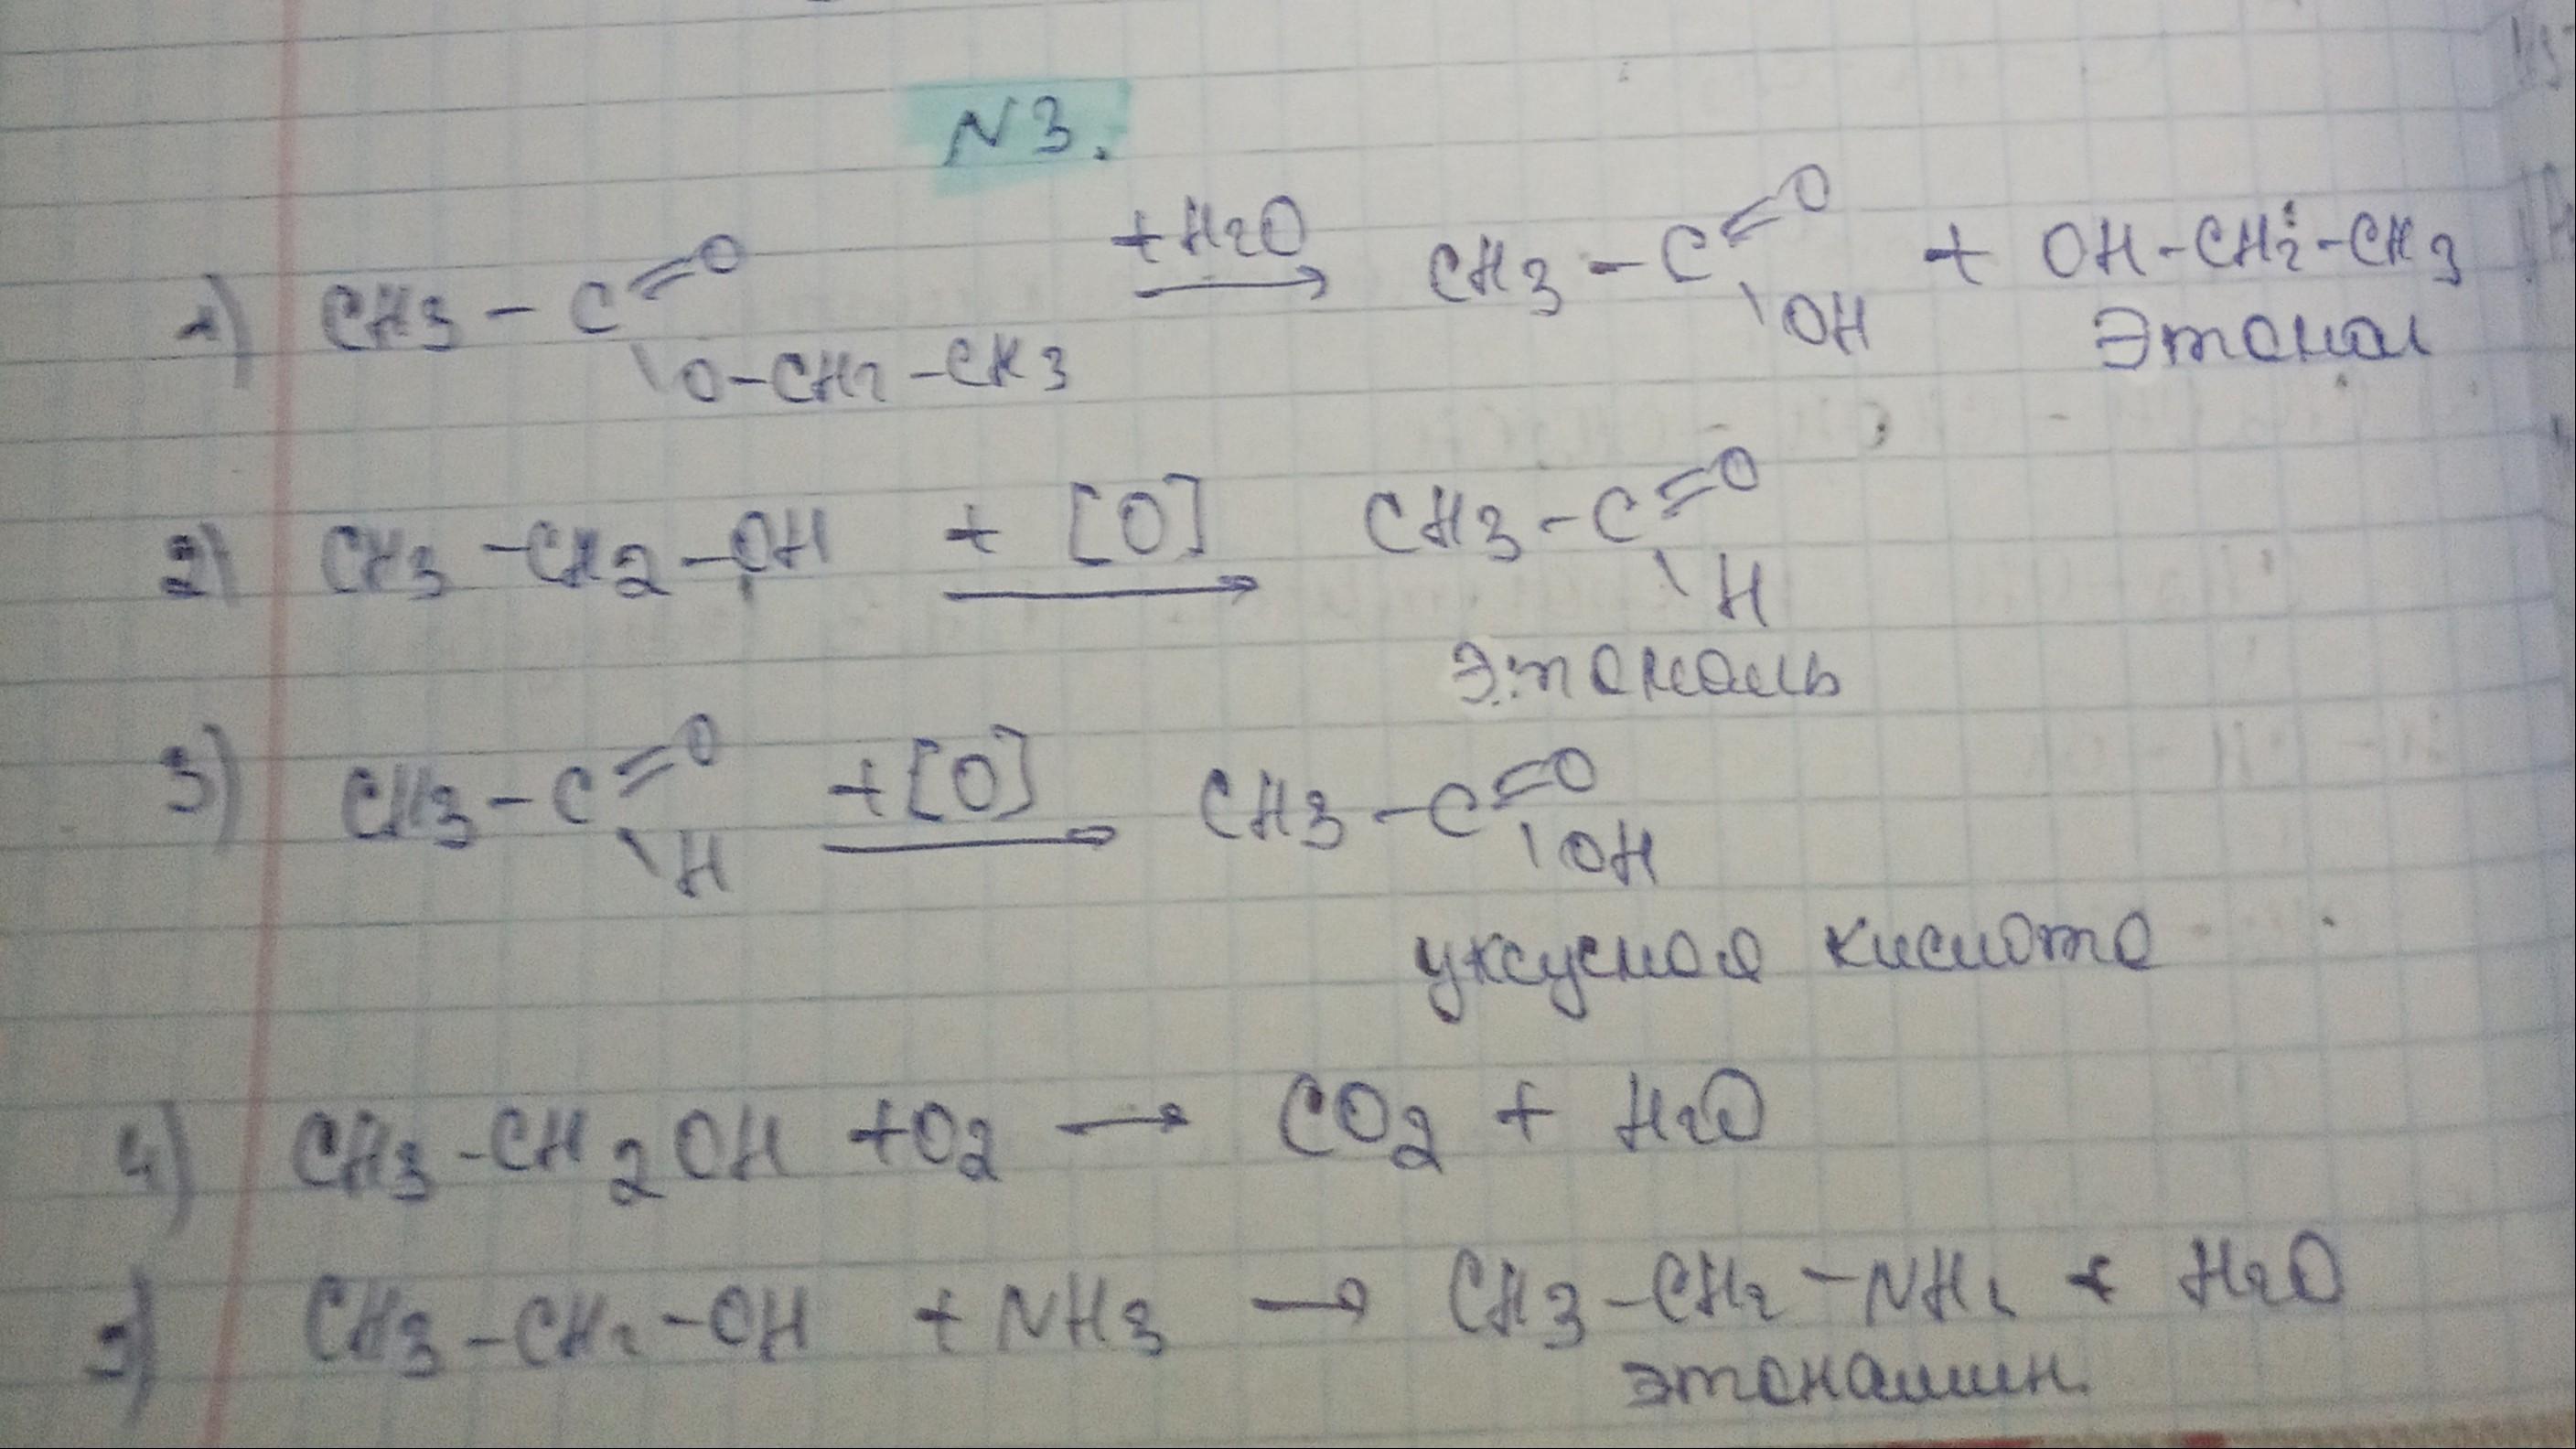 N3.
1) CH3 – C =O \O–CH2–CH3 +H2O → CH3 – C =O \OH + OH–CH2–CH3
Этанол
2) CH3 –CH2 –OH + [O] → CH3 – C =O \H
Этаналь
3) CH3 – C =O \H +[O] → CH3 – C =O \OH
уксусная кислота
4) CH3 -CH2OH +O2 → CO2 + H2O
5) CH3 –CH2 –OH + NH3 → CH3 –CH2 –NH2 + H2O
этанамин.